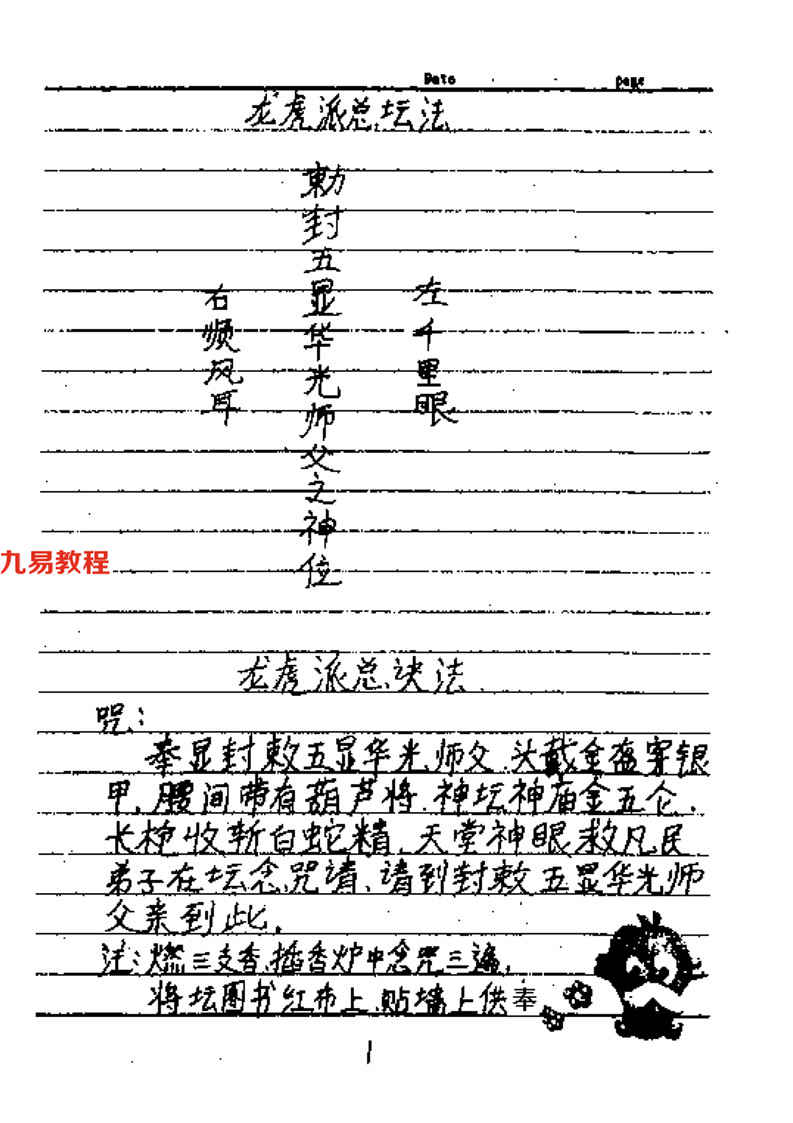 Date page
龙虎派总坛法
左千里眼
勅封五显华光师父之神位
右顺风耳
九易教程
龙虎派总诀法
咒:
奉显封敕五显华光师父.头戴金盔穿银
甲.腰间带有葫芦将.神坛神庙金五仑.
长枪收斩白蛇精.天堂神眼救凡民
弟子在坛念咒请、请到封敕五显华光师
父亲到此.
注:燃三支香.插香炉中念咒三遍,
将坛图书红布上.贴墙上供奉
1